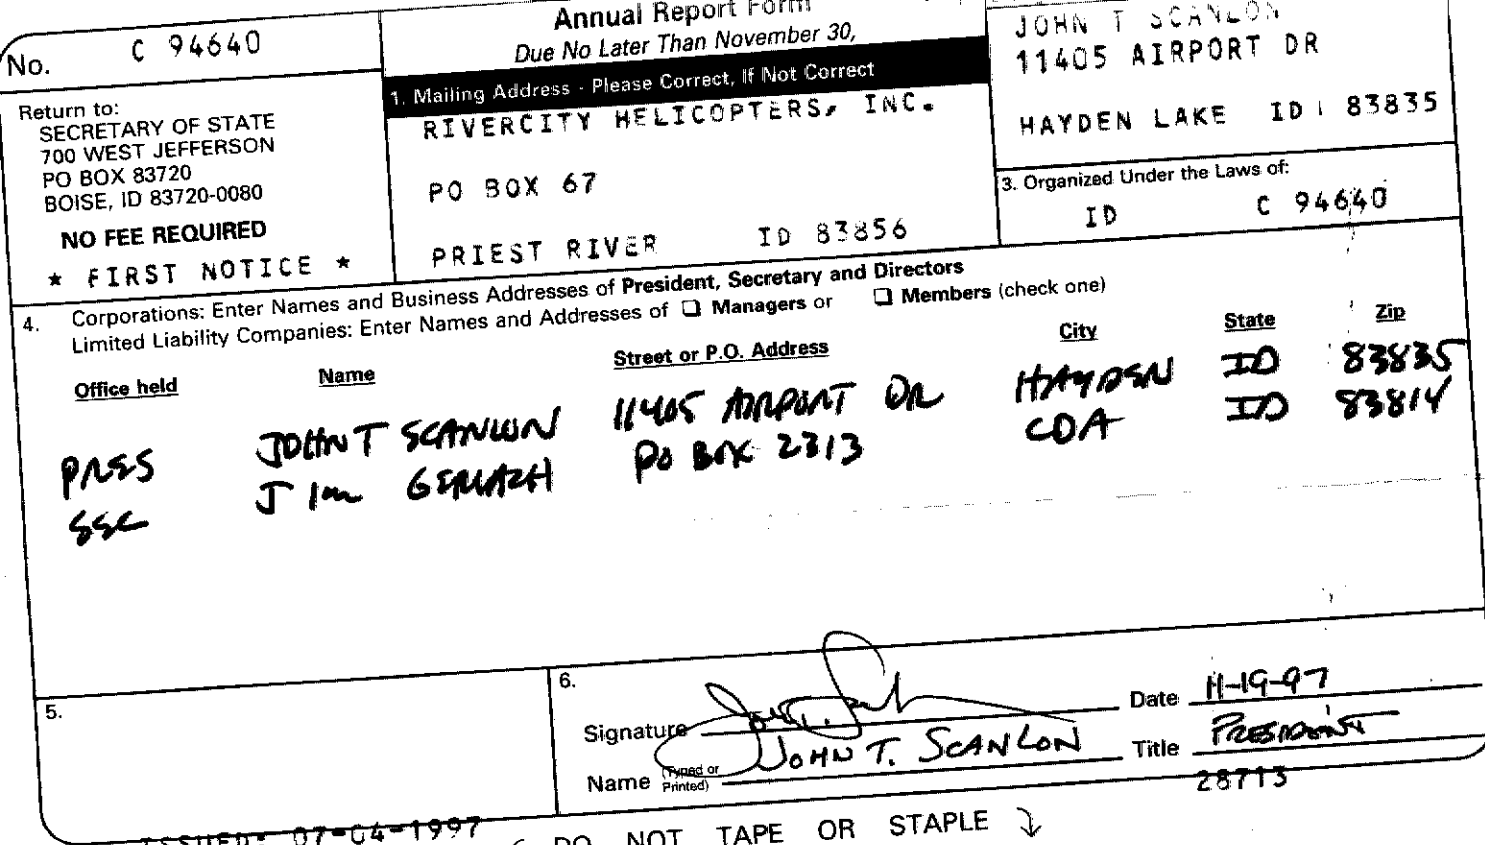 No. C 94640
Return to:
SECRETARY OF STATE
700 WEST JEFFERSON
PO BOX 83720
BOISE, ID 83720-0080
NO FEE REQUIRED
* FIRST NOTICE *
Annual Report Form
Due No Later Than November 30,
1. Mailing Address - Please Correct, If Not Correct
RIVERCITY HELICOPTERS, INC.
PO BOX 67
PRIEST RIVER ID 83856
JOHN T SCANLON
11405 AIRPORT DR
HAYDEN LAKE ID 83835
3. Organized Under the Laws of:
ID C 94640
4. Corporations: Enter Names and Business Addresses of President, Secretary and Directors
Limited Liability Companies: Enter Names and Addresses of ❑ Managers or ❑ Members (check one)
Office held Name Street or P.O. Address City State Zip
PRES JOHN T SCANLON 11405 AIRPORT DR HAYDEN ID 83835
SEC JIM GERLACH PO BOX 2313 CDA ID 83814
5.
6.
Signature Date 11-19-97
Name (Typed or Printed) JOHN T. SCANLON Title PRESIDENT
28713
ISSUED: 07-04-1997
DO NOT TAPE OR STAPLE